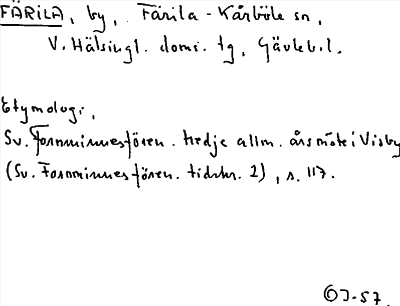 FÄRILA, by, Färila-Kårböle sn,
V. Hälsingl. doms. tg, Gävleb.l.
Etymologi,
Sv. Fornminnesfören. tredje allm. årsmöte i Visby
(Sv. Fornminnesfören. tidskr. 2), s. 117.
OJ-57